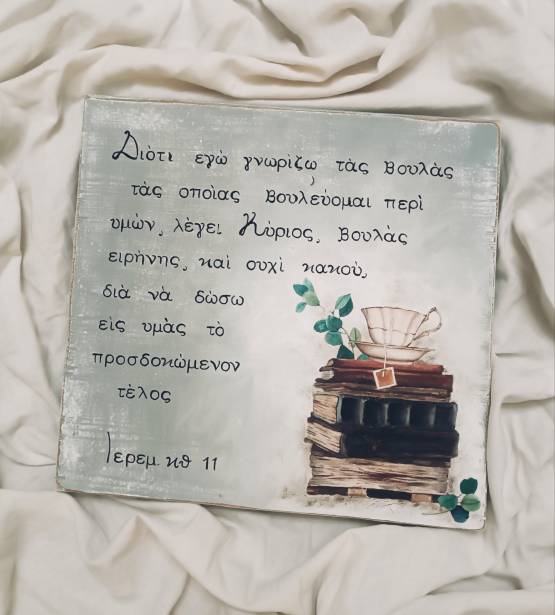 Διότι εγὼ γνωρὶζω τὰς Βουλὰς
τὰς οποὶας Βουλεὺομαι περὶ
υμών, λὲγει Κὺριος, Βουλὰς
ειρὴνης, καὶ ουχὶ κακοὺ,
διὰ νὰ δὼσω
εὶς υμὰς τὸ
προσδοκὼμενον
τὲλος
Ιερεμ. κθ 11